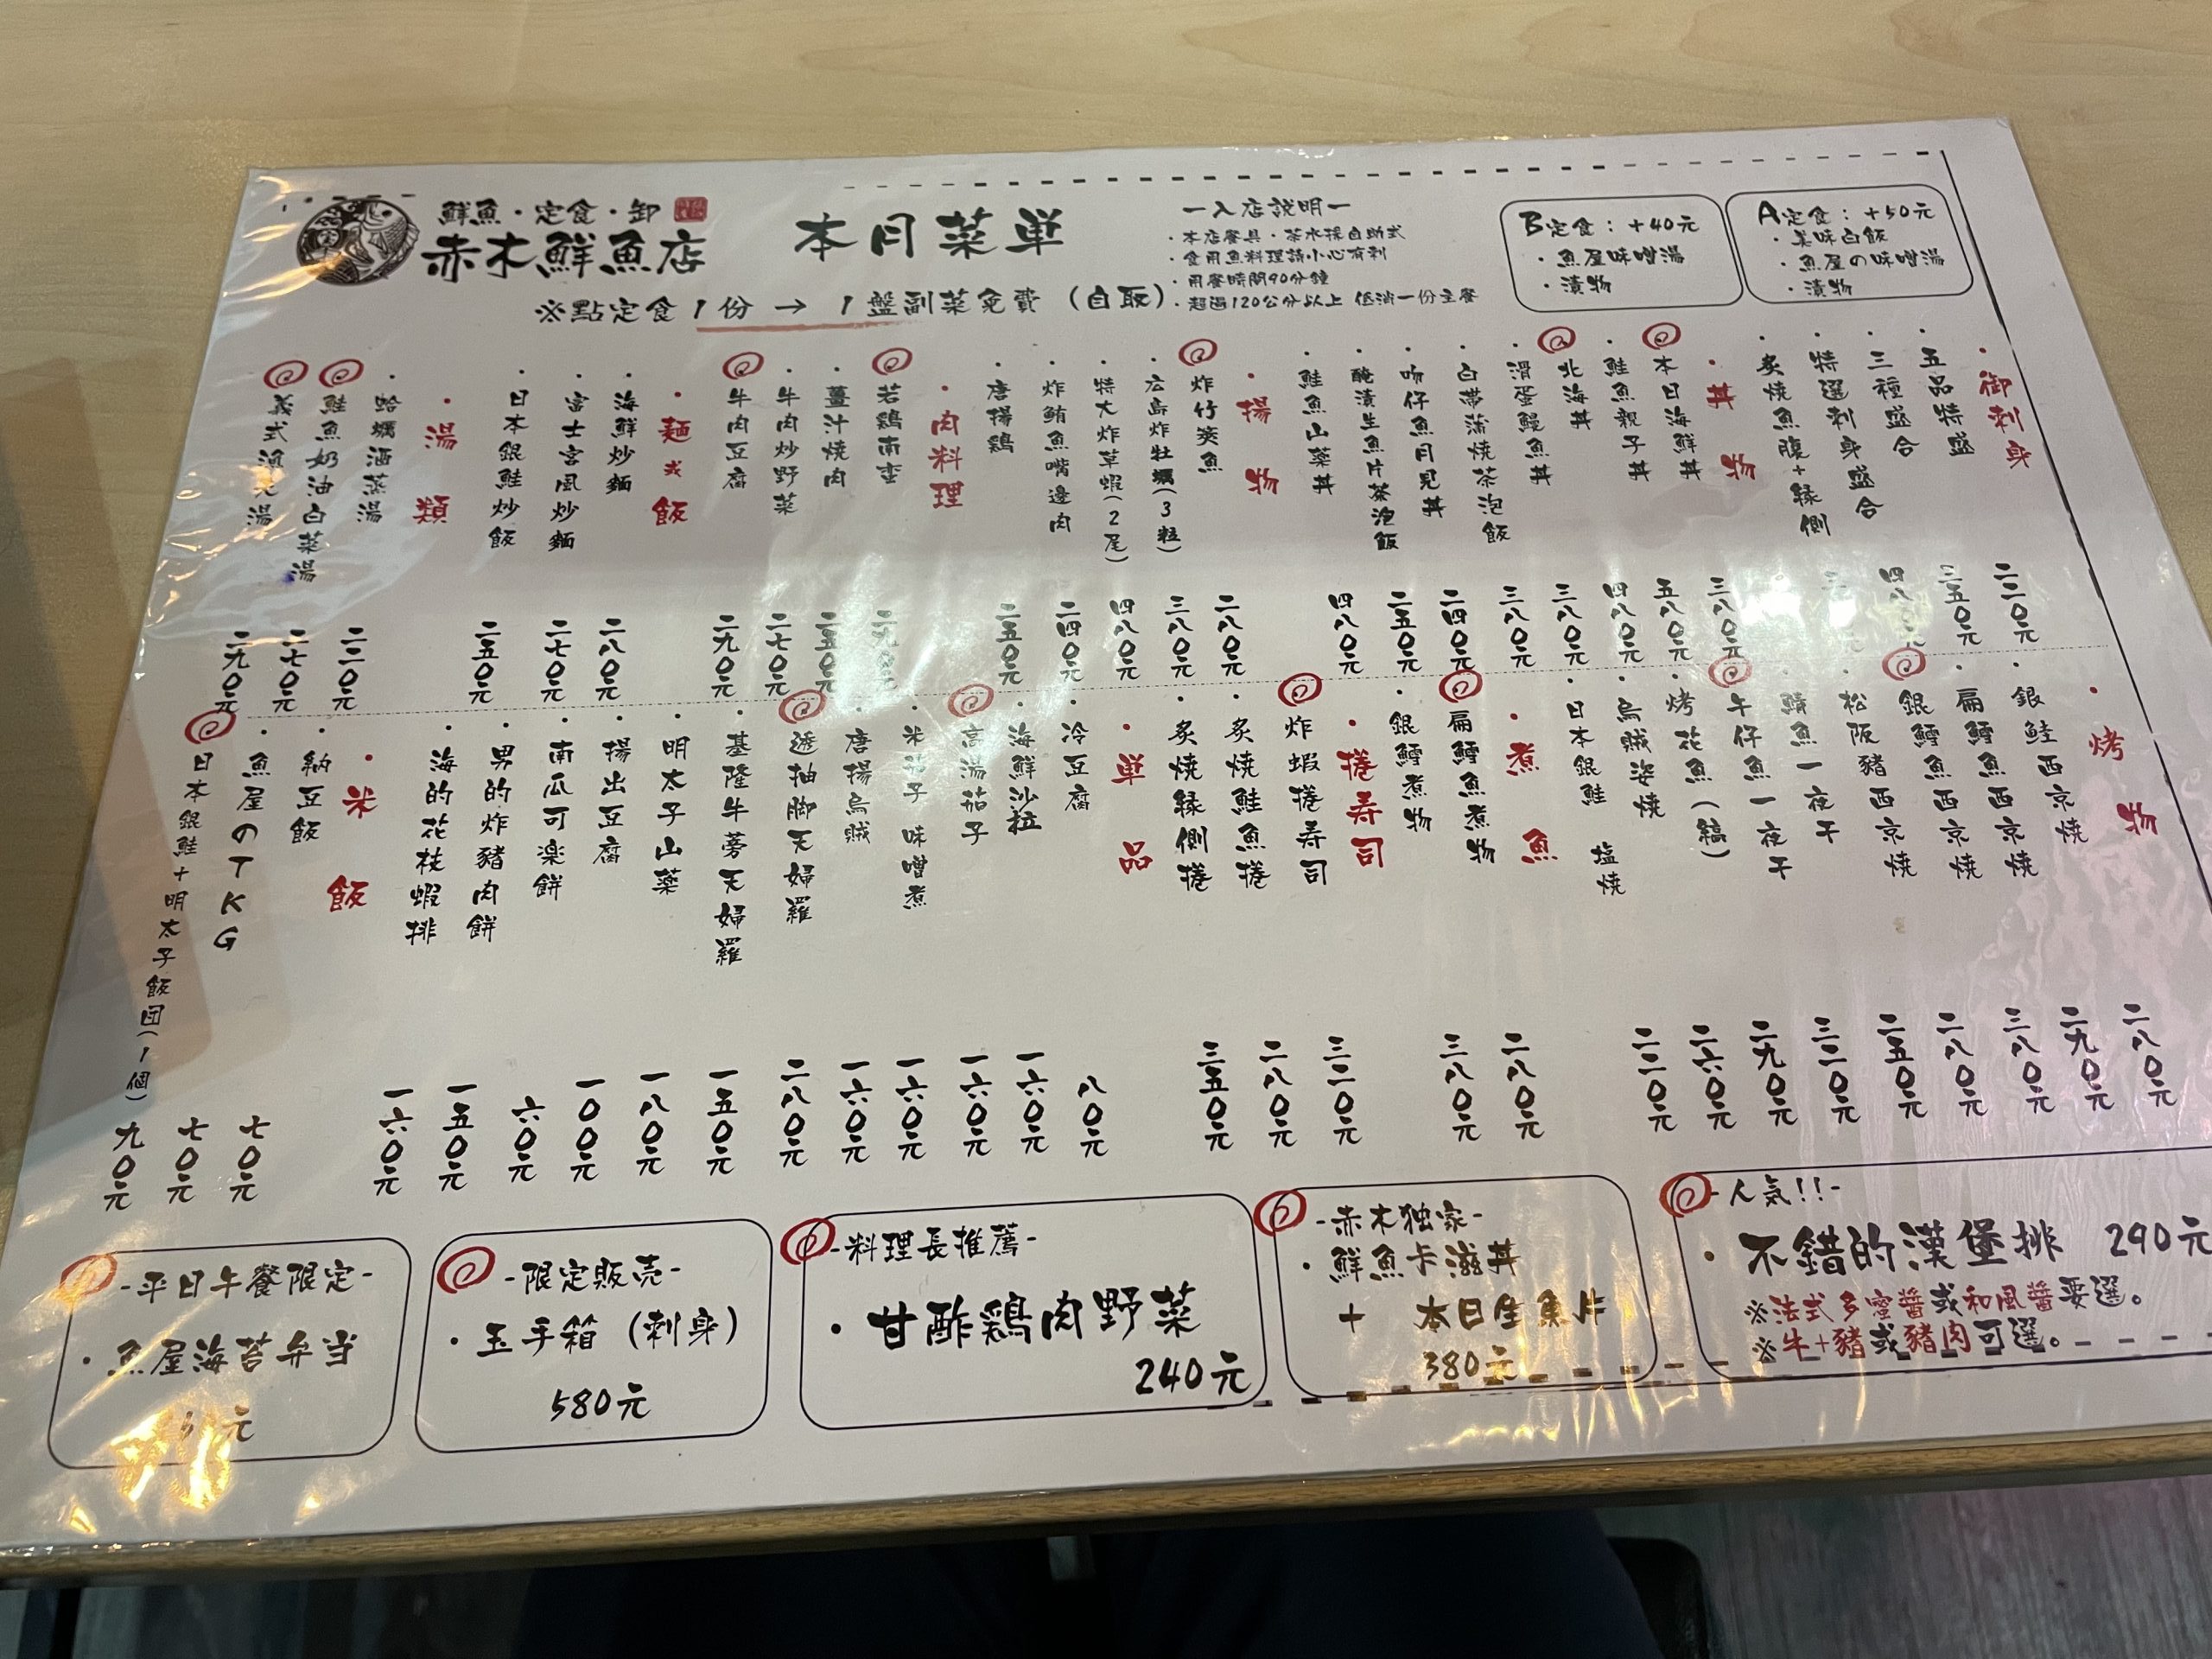 鮮魚・定食・卸
赤木鮮魚店
本月菜単
※點定食1份 → 1盤副菜免費(自取)
－入店説明－
・本店餐具・茶水採自助式
・食用魚料理請小心有刺
・用餐時間90分鐘
・超過120公分以上 低消一份主餐
B定食：+40元
・魚屋味噌湯
・漬物
A定食：+50元
・美味白飯
・魚屋の味噌湯
・漬物
・御刺身
・五品特盛
・三種盛合 三五〇元
・特選刺身盛合 四八〇元
・炙燒魚腹+緣側
・丼物
本日海鮮丼 三八〇元
・鮭魚親子丼 五八〇元
北海丼 四八〇元
・滑蛋鰻魚丼 三八〇元
・白帶蒲燒茶泡飯 三八〇元
・吻仔魚月見丼 二四〇元
・醃漬生魚片茶泡飯 二五〇元
・鮭魚山藥丼 四八〇元
・揚物
炸竹筴魚 二八〇元
・広島炸牡蠣(3粒) 三八〇元
・特大炸草蝦(2尾) 四八〇元
・炸鮪魚嘴邊肉 二四〇元
・唐揚鶏 二五〇元
・肉料理
若鶏南蛮
・薑汁燒肉 二五〇元
・牛肉炒野菜 二七〇元
牛肉豆腐 二九〇元
・麺或飯
・海鮮炒麵 二八〇元
・富士宮風炒麵 二七〇元
・日本銀鮭炒飯 二五〇元
・湯類
・蛤蠣酒蒸湯 二二〇元
鮭魚奶油白菜湯 二七〇元
義式漁夫湯 二九〇元
・烤物
・銀鮭西京燒 二八〇元
・扁鱈魚西京燒 二九〇元
銀鱈魚西京燒 三八〇元
・松阪豬西京燒 二八〇元
・鯖魚一夜干 二五〇元
午仔魚一夜干 三二〇元
・烤花魚(縞) 二九〇元
・烏賊姿燒 二六〇元
・日本銀鮭 塩燒 二二〇元
・煮魚
扁鱈魚煮物 二八〇元
・銀鱈煮物 三八〇元
・捲寿司
炸蝦捲寿司 三二〇元
・炙燒鮭魚捲 二八〇元
・炙燒緣側捲 三五〇元
・単品
・冷豆腐 八〇元
・海鮮沙拉 一六〇元
高湯茄子 一六〇元
・米茄子味噌煮 一六〇元
・唐揚烏賊 一六〇元
透抽脚天婦羅 二八〇元
・基隆牛蒡天婦羅 一五〇元
・明太子山藥 一八〇元
・揚出豆腐 一〇〇元
・南瓜可楽餅 六〇元
・男的炸豬肉餅 一五〇元
・海的花枝蝦排 一六〇元
・米飯
・納豆飯 七〇元
・魚屋のTKG 七〇元
日本銀鮭+明太子飯団(1個) 九〇元
-平日午餐限定-
・魚屋海苔弁当
元
-限定販売-
・玉手箱(刺身)
580元
-料理長推薦-
・甘酢鶏肉野菜
240元
-赤木独家-
・鮮魚卡滋丼
+ 本日生魚片
380元
-人気!!-
・不錯的漢堡排 290元
※法式多蜜醬或和風醬要選。
※牛+豬或豬肉可選。